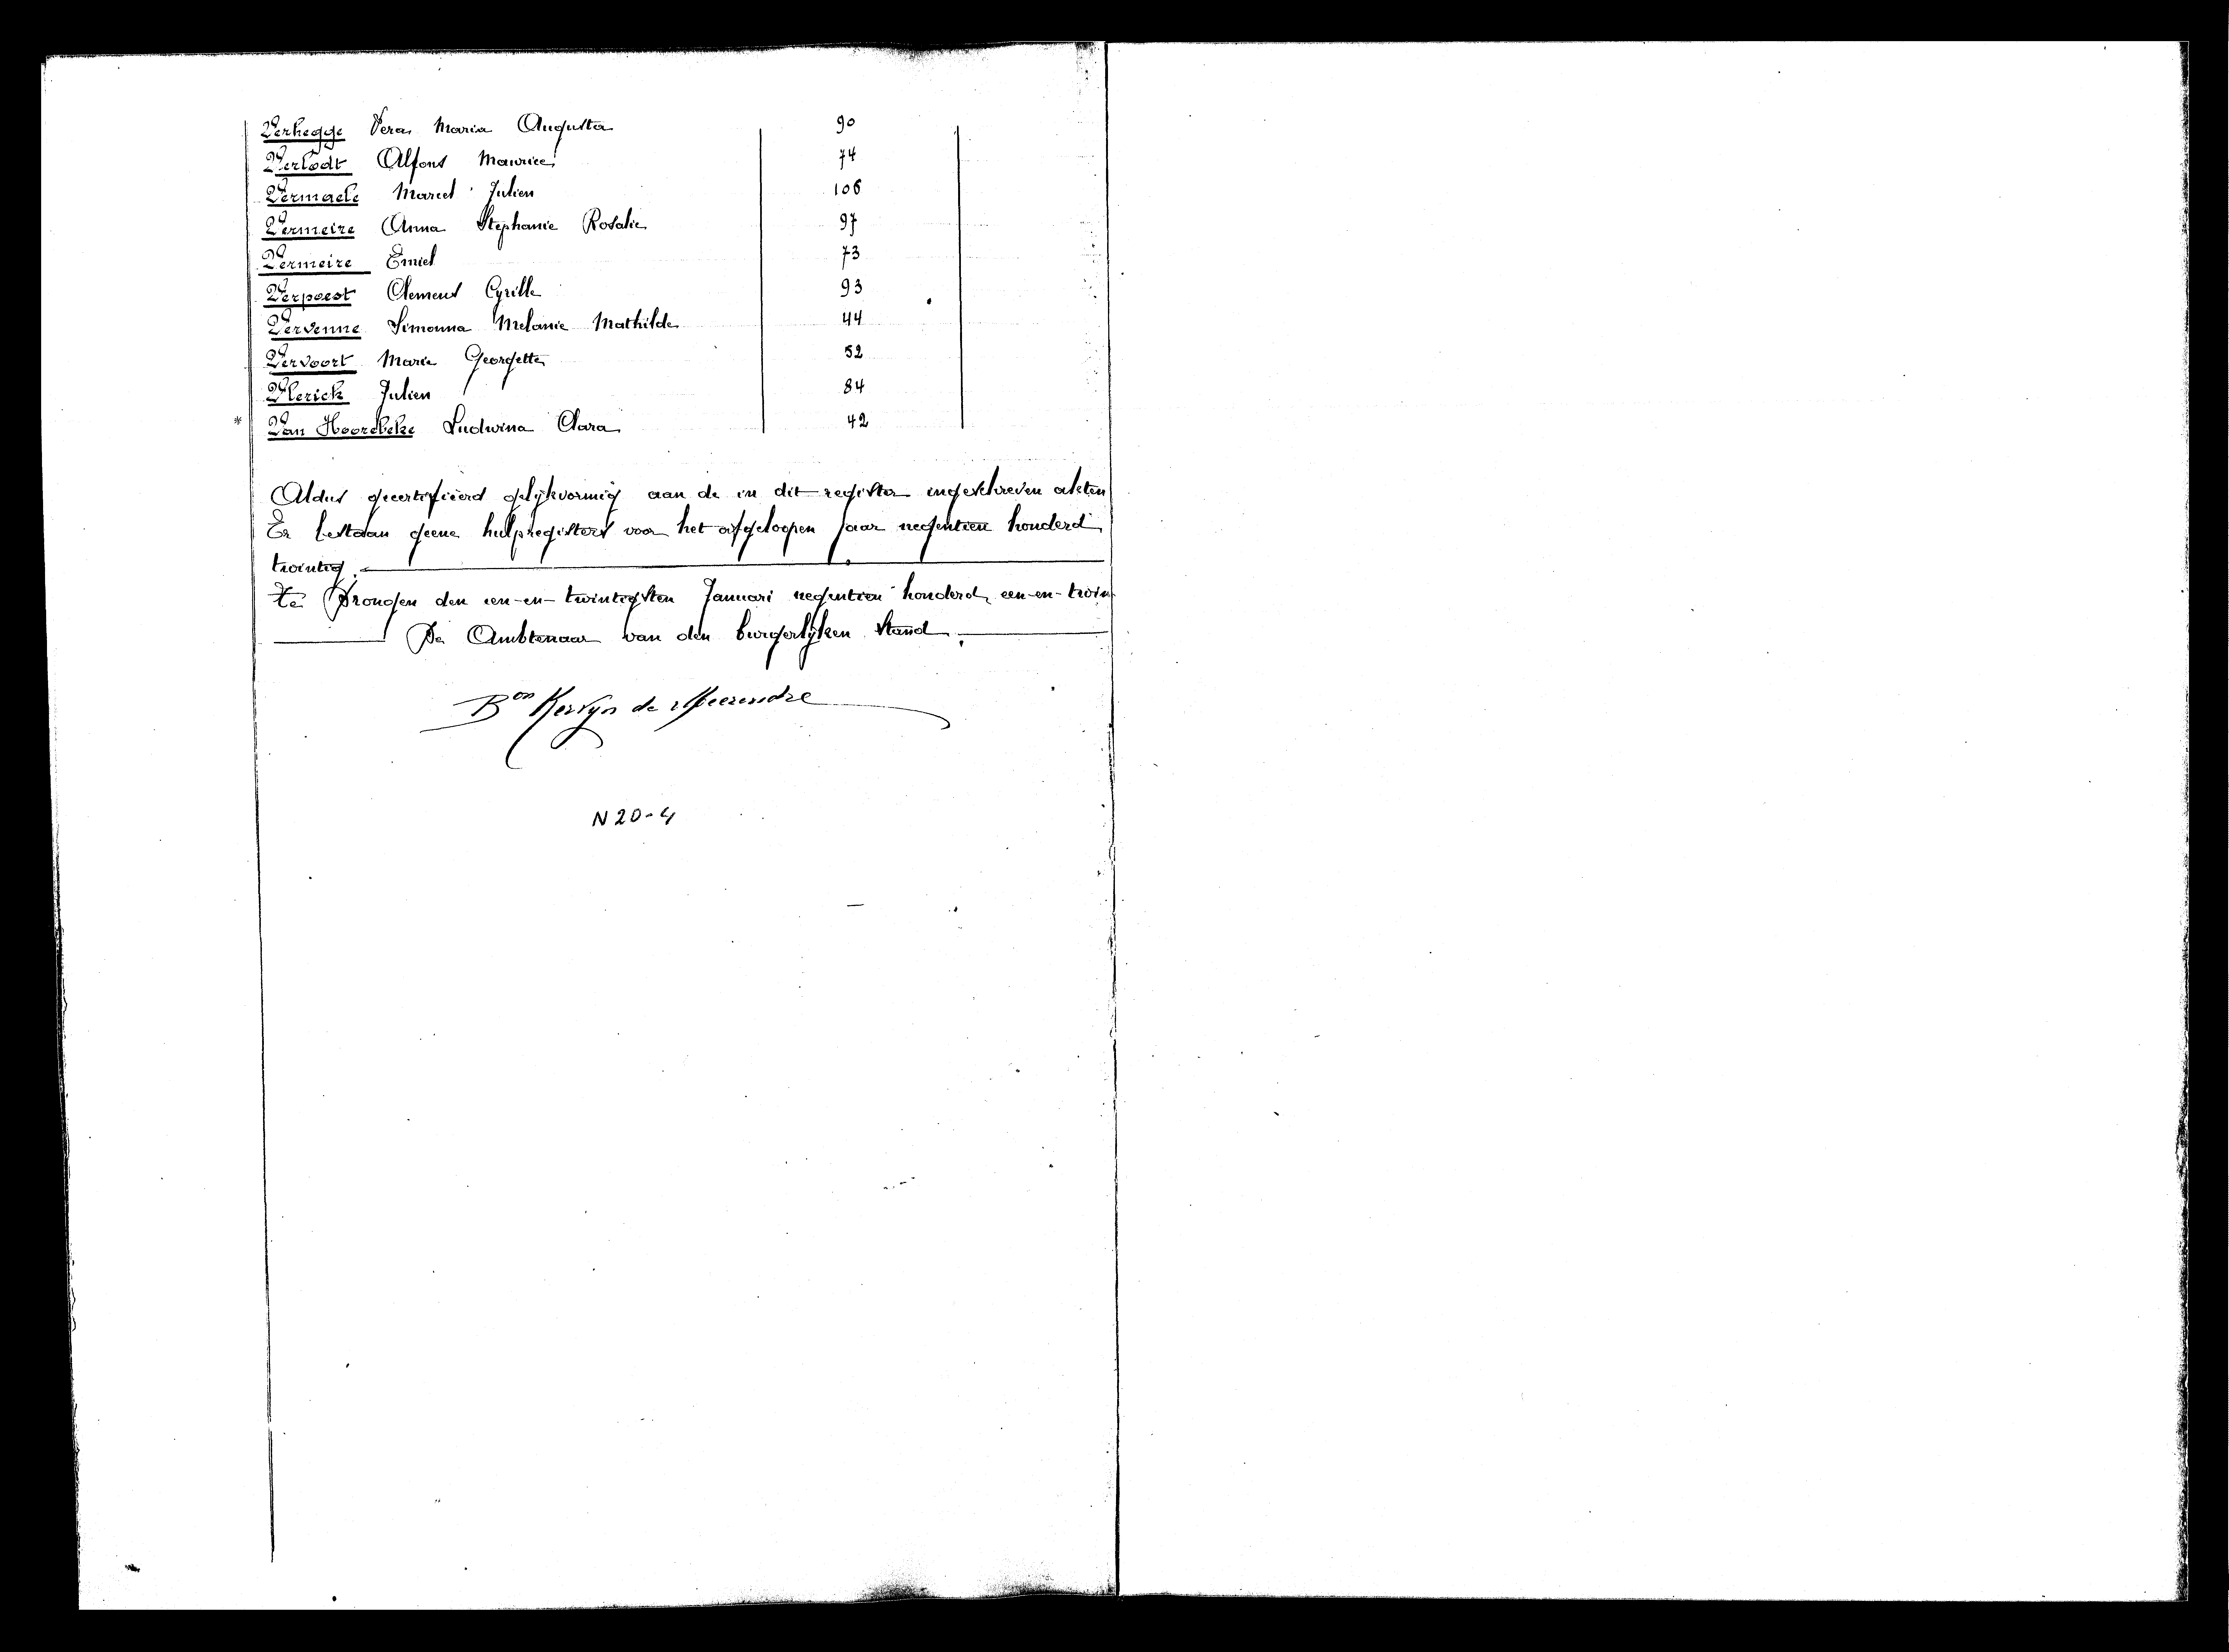 Verhegge Vera Maria Augusta 90
Verlodt Alfons Maurice 74
Vermaele Marcel Julien 106
Vermeire Anna Stephanie Rosalie 97
Vermeire Emiel 73
Verpoest Clement Cyrille 93
Vervenne Simonna Melanie Mathilde 44
Vervoort Marie Georgette 52
Vlerick Julien 84
* Van Hoorebeke Ludwina Clara 42
Aldus gecertifieerd gelijkvormig aan de in dit register ingeschreven akten
Er bestaan geene hulpregisters voor het afgeloopen jaar negentien honderd
twintig.
Te Drongen den een-en-twintigsten Januari negentien honderd een-en-twin
De Ambtenaar van den burgerlijken stand.
Bon Kervyn de Meerendré
N 20-4